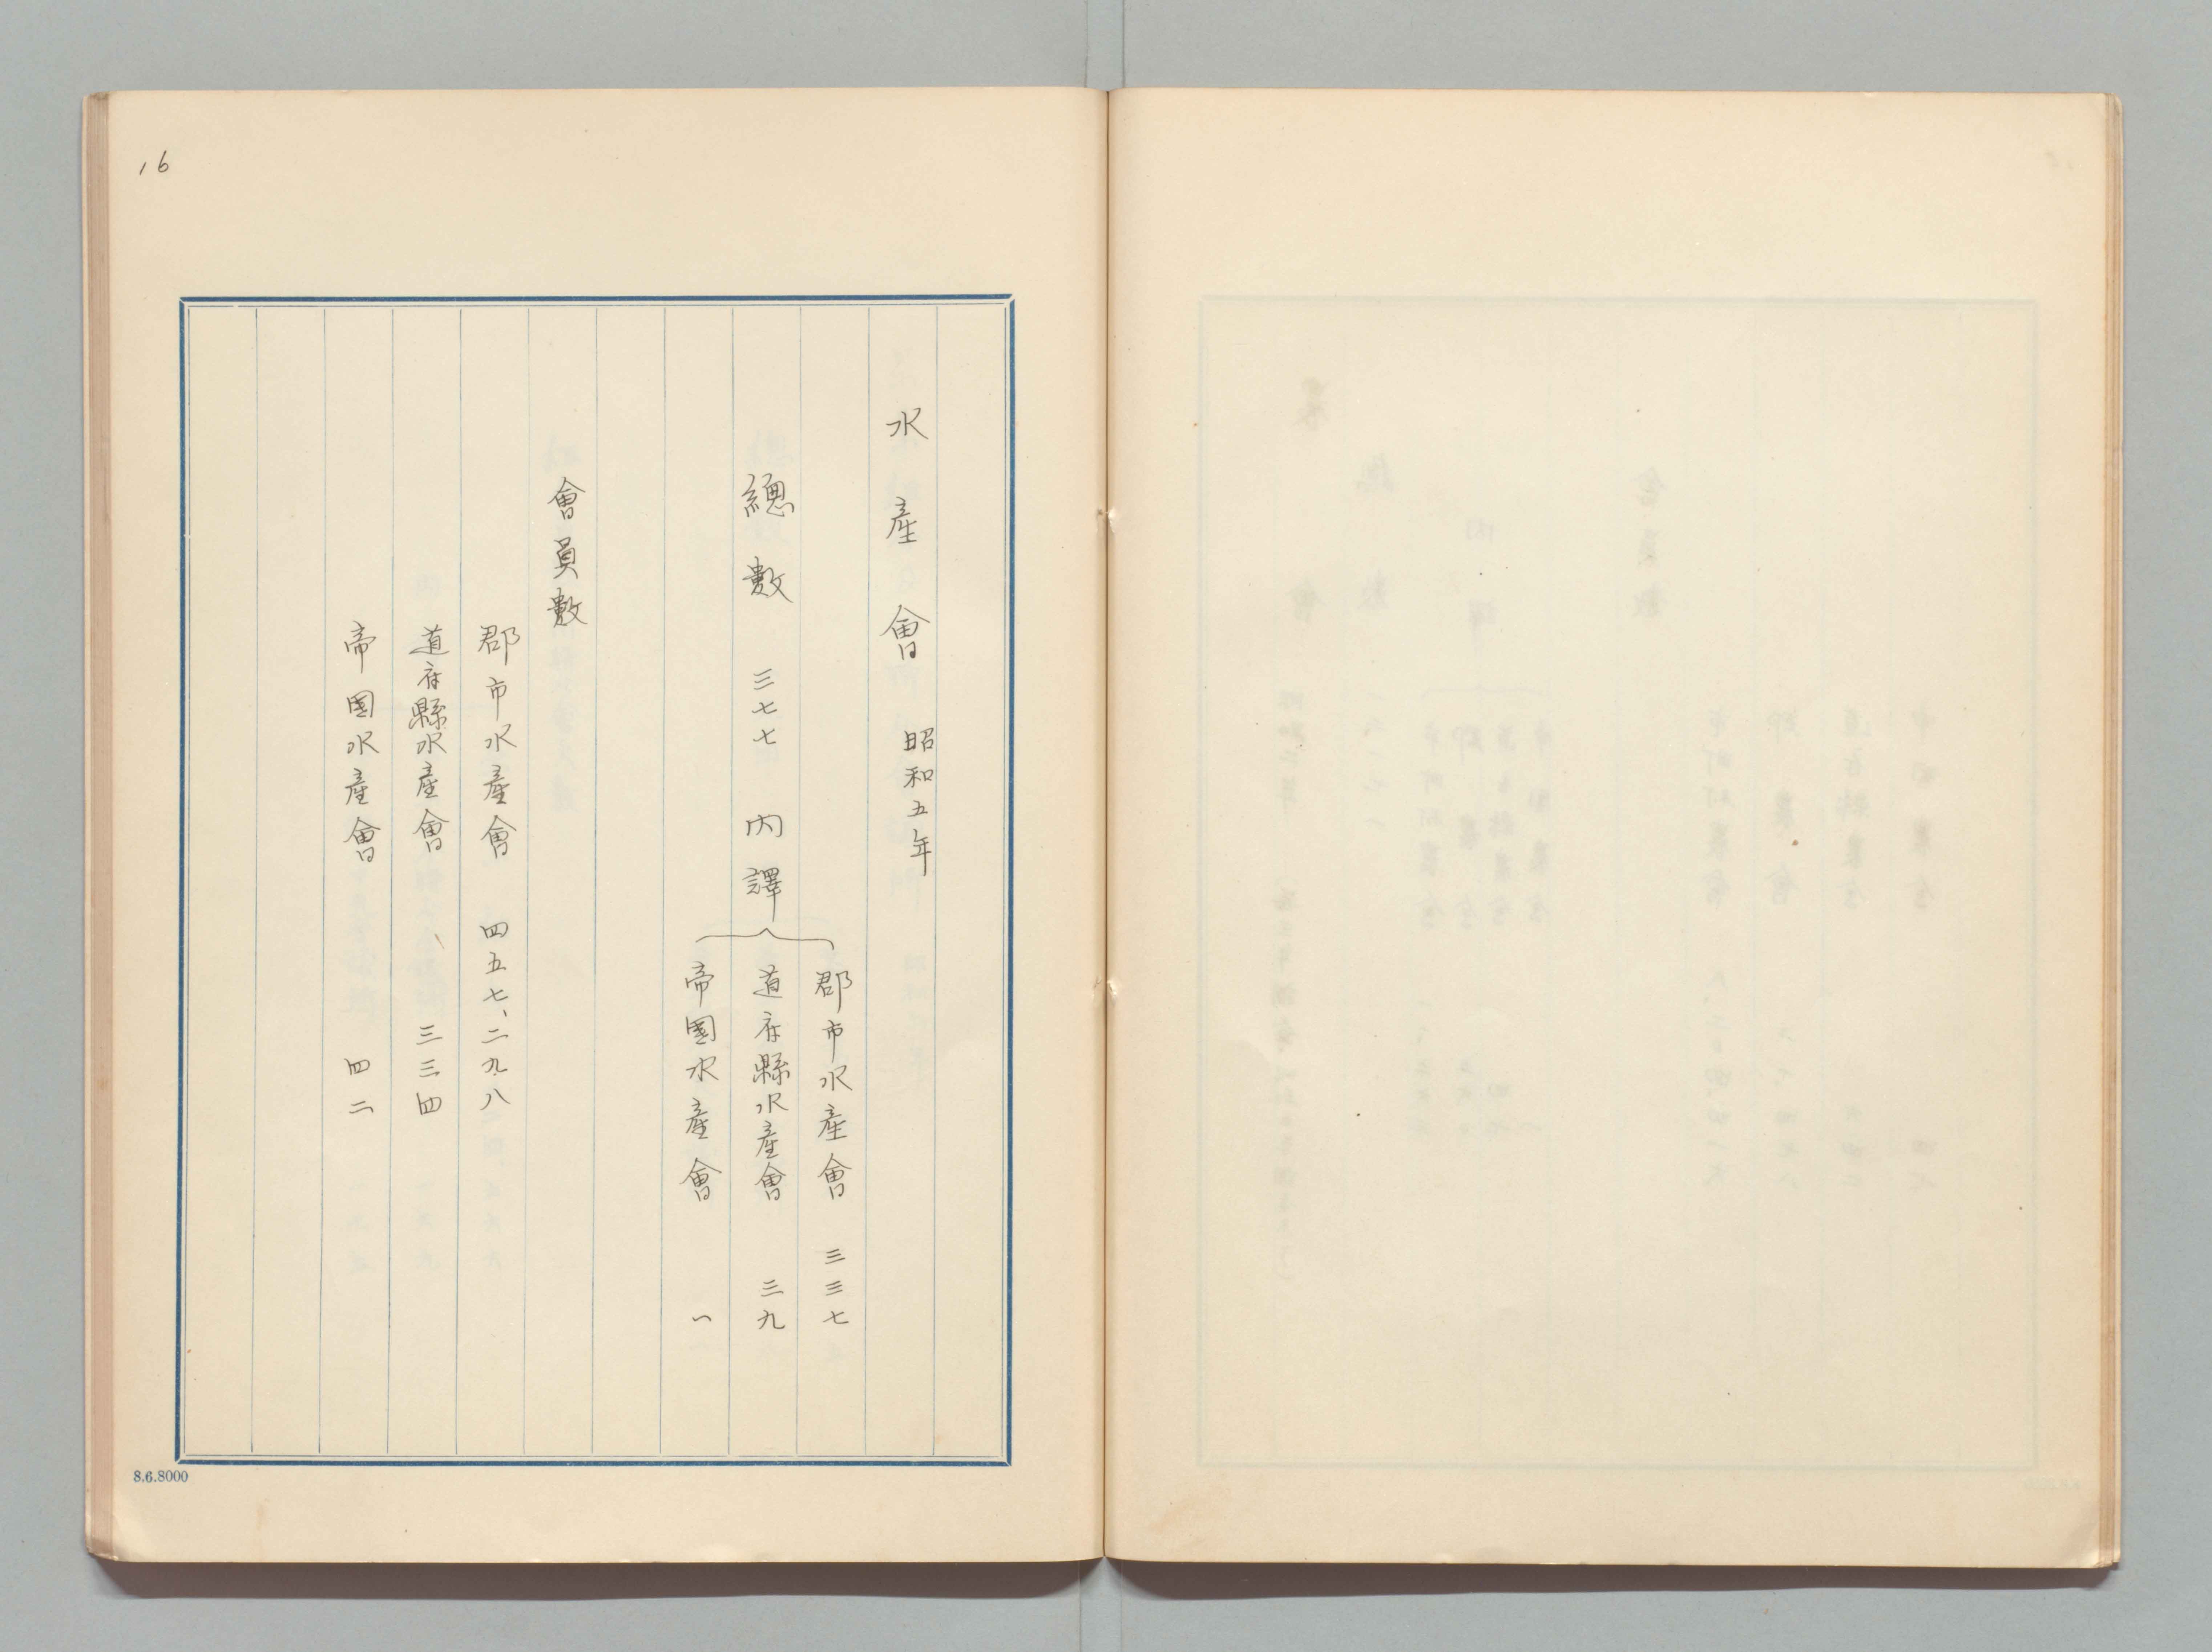 16
水産會 昭和五年
總數 三七七 内譯
郡市水産會 三三七
道府縣水産會 三九
帝國水産會 一
會員數
郡市水産會 四五七、二九八
道府縣水産會 三三四
帝國水産會 四二
8.6.8000